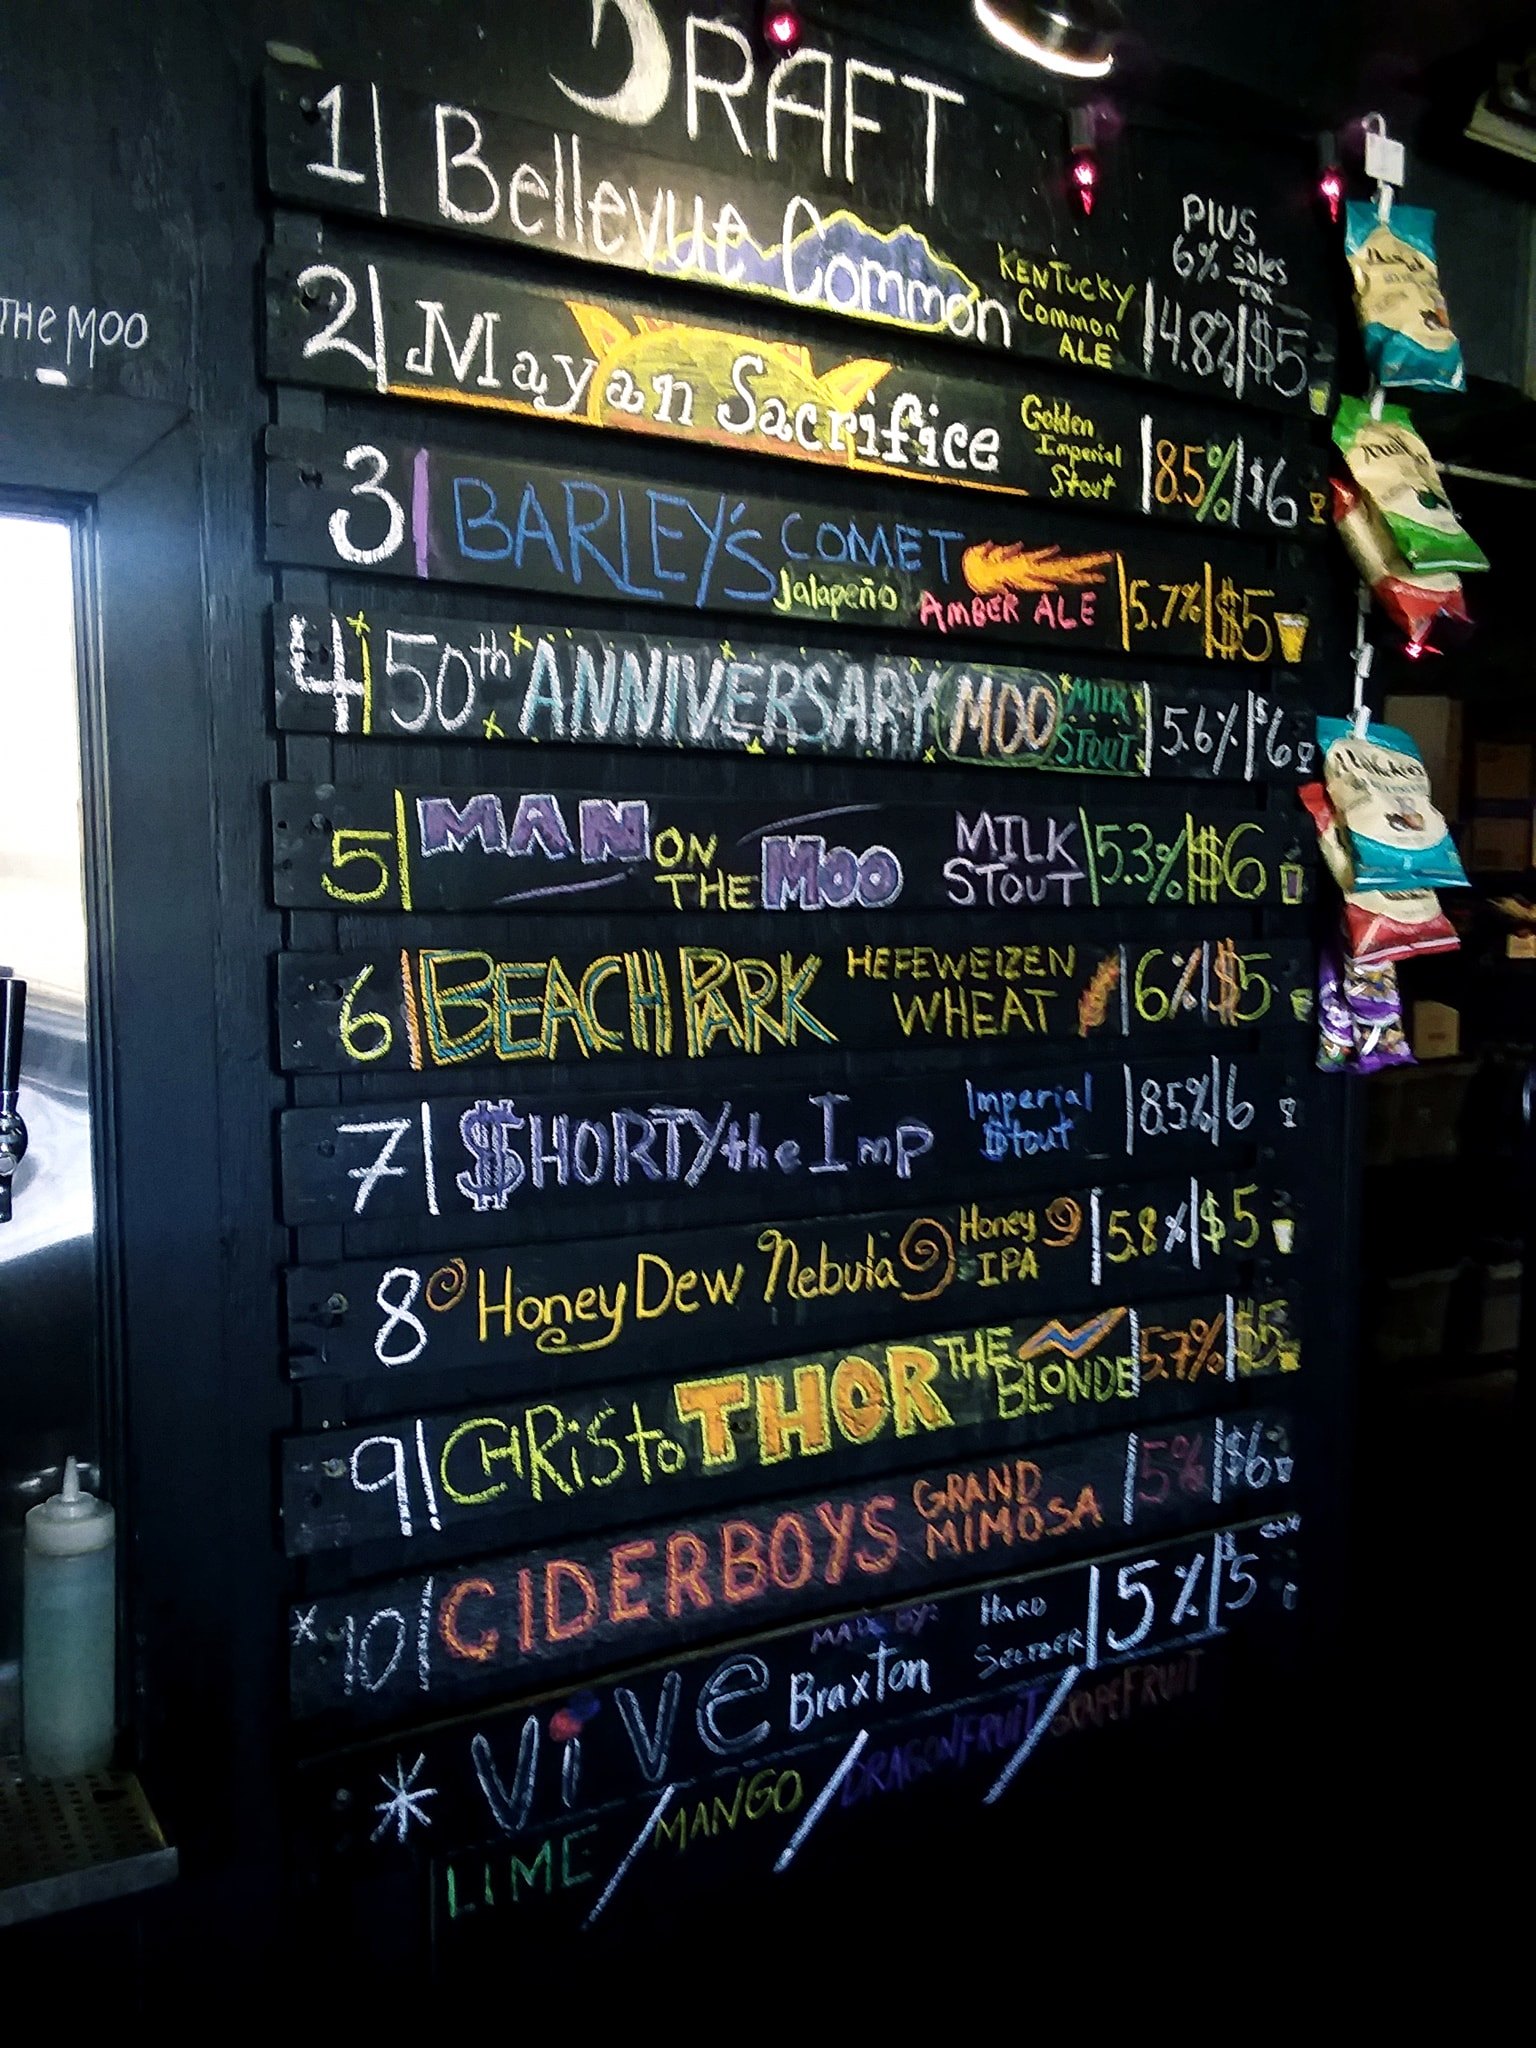 DRAFT
PLUS
6% Sales
Tax
1 | Bellevue Common KENTUCKY Common ALE | 4.8% | $5
2 | Mayan Sacrifice Golden Imperial Stout | 8.5% | $6
3 | BARLEY'S COMET Jalapeño AMBER ALE | 5.7% | $5
4 | 50th ANNIVERSARY MOO MILK STOUT | 5.6% | $6
5 | MAN ON THE MOO MILK STOUT | 5.3% | $6
6 | BEACH PARK HEFEWEIZEN WHEAT | 6% | $5
7 | $HORTY the Imp Imperial $tout | 8.5% | 6
8 Honey Dew Nebula Honey IPA | 5.8% | $5
9 | CHRiSto THOR THE BLONDE | 5.7% | $5
* 10 | CIDERBOYS GRAND MIMOSA | 5% | $6
* ViVe MADE BY: Braxton HARD SELTZER | 5% | $5
LIME / MANGO / DRAGONFRUIT / GRAPEFRUIT
THE MOO